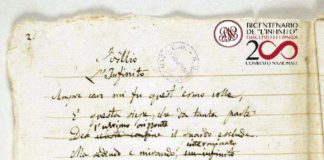 BICENTENARIO
DE "L'INFINITO"
GIACOMO LEOPARDI
200
COMITATO NAZIONALE
2.
Idillio
L'Infinito
Sempre caro mi fu quest'ermo colle,
E questa siepe, che da tanta parte
l'ultimo orizzonte
celeste confine il guardo esclude.
interminato
Ma sedendo e mirando, un infinito